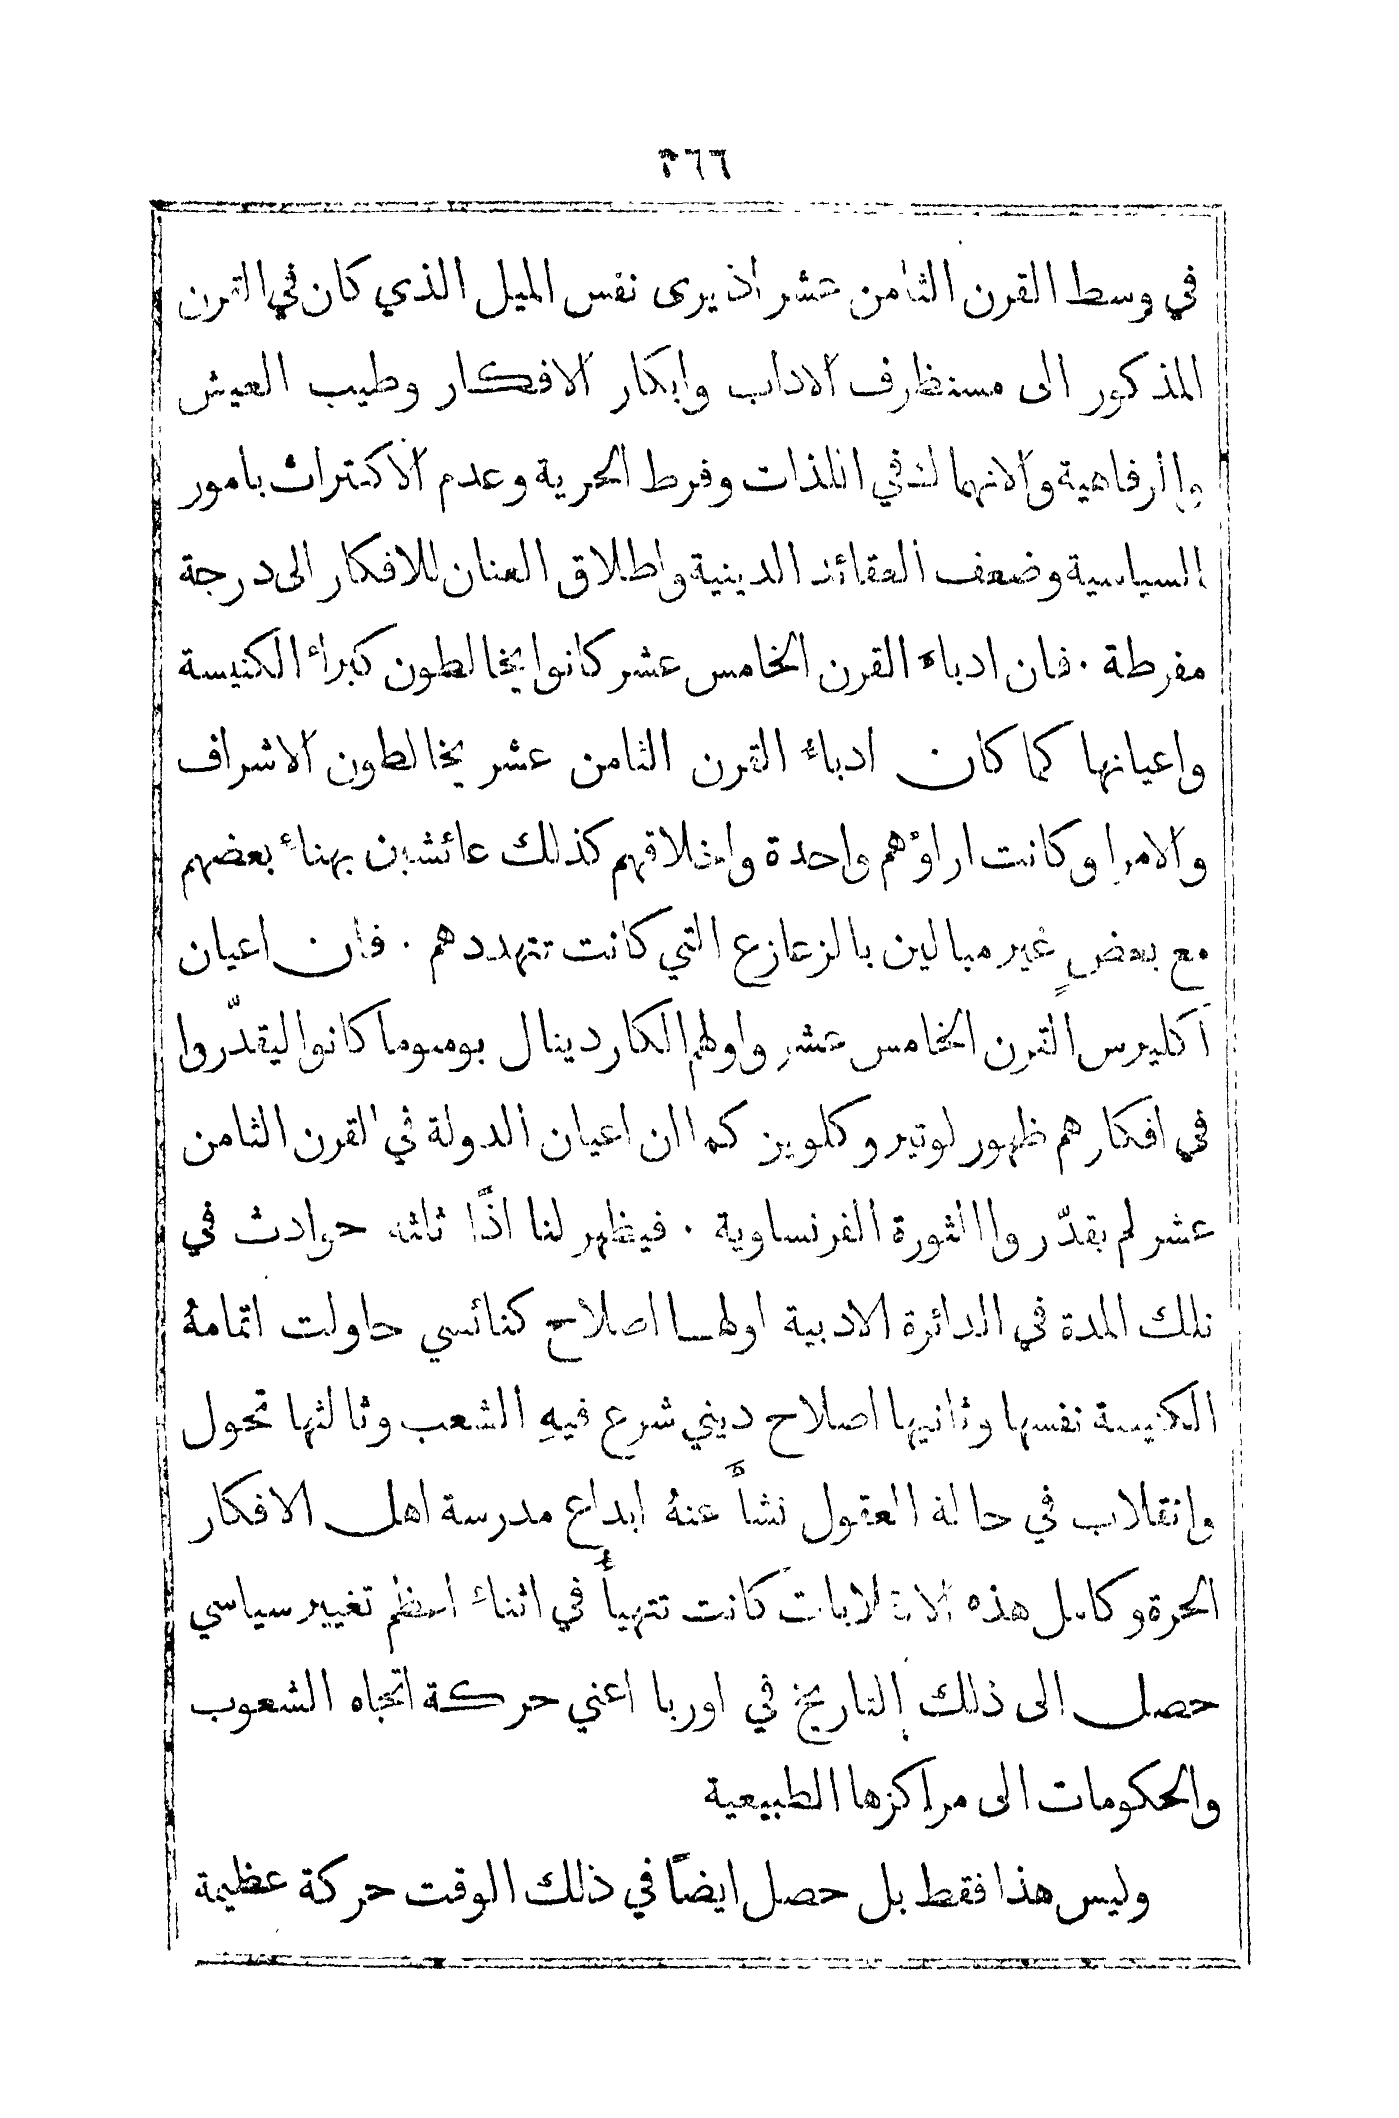 ٣٦٦
في وسط القرن الثامن عشر اذ يرى نفس الميل الذي كان في القرن
المذكور الى مستظرف الاداب وابكار الافكار وطيب العيش
والرفاهية والانهماك في اللذات وفرط الحرية وعدم الاكتراث بامور
السياسية وضعف العقائد الدينية واطلاق العنان للافكار الى درجة
مفرطة . فان ادباء القرن الخامس عشر كانوا يخالطون كبراء الكنيسة
واعيانها كما كان ادباء القرن الثامن عشر يخالطون الاشراف
والامرا وكانت اراؤهم واحدة واخلاقهم كذلك عائشين بهناء بعضهم
مع بعضٍ غير مبالين بالزعازع التي كانت تتهددهم . فان اعيان
اكليرس القرن الخامس عشر واولهم الكاردينال بومبوما كانوا ليقدّروا
في افكارهم ظهور لوتير وكلوين كما ان اعيان الدولة في القرن الثامن
عشر لم يقدّروا الثورة الفرنساوية . فيظهر لنا اذًا ثلثه حوادث في
تلك المدة في الدائرة الادبية اولها اصلاح كنائسي حاولت اتمامهُ
الكنيسة نفسها وثانيها اصلاح ديني شرع فيهِ الشعب وثالثها تحول
وانقلاب في حالة العقول نشأ عنهُ ابداع مدرسة اهل الافكار
الحرة وكامل هذه الانقلابات كانت تتهيأ في اثناء اعظم تغيير سياسي
حصل الى ذلك التاريخ في اوربا اعني حركة اتجاه الشعوب
والحكومات الى مراكزها الطبيعية
وليس هذا فقط بل حصل ايضاً في ذلك الوقت حركة عظيمة